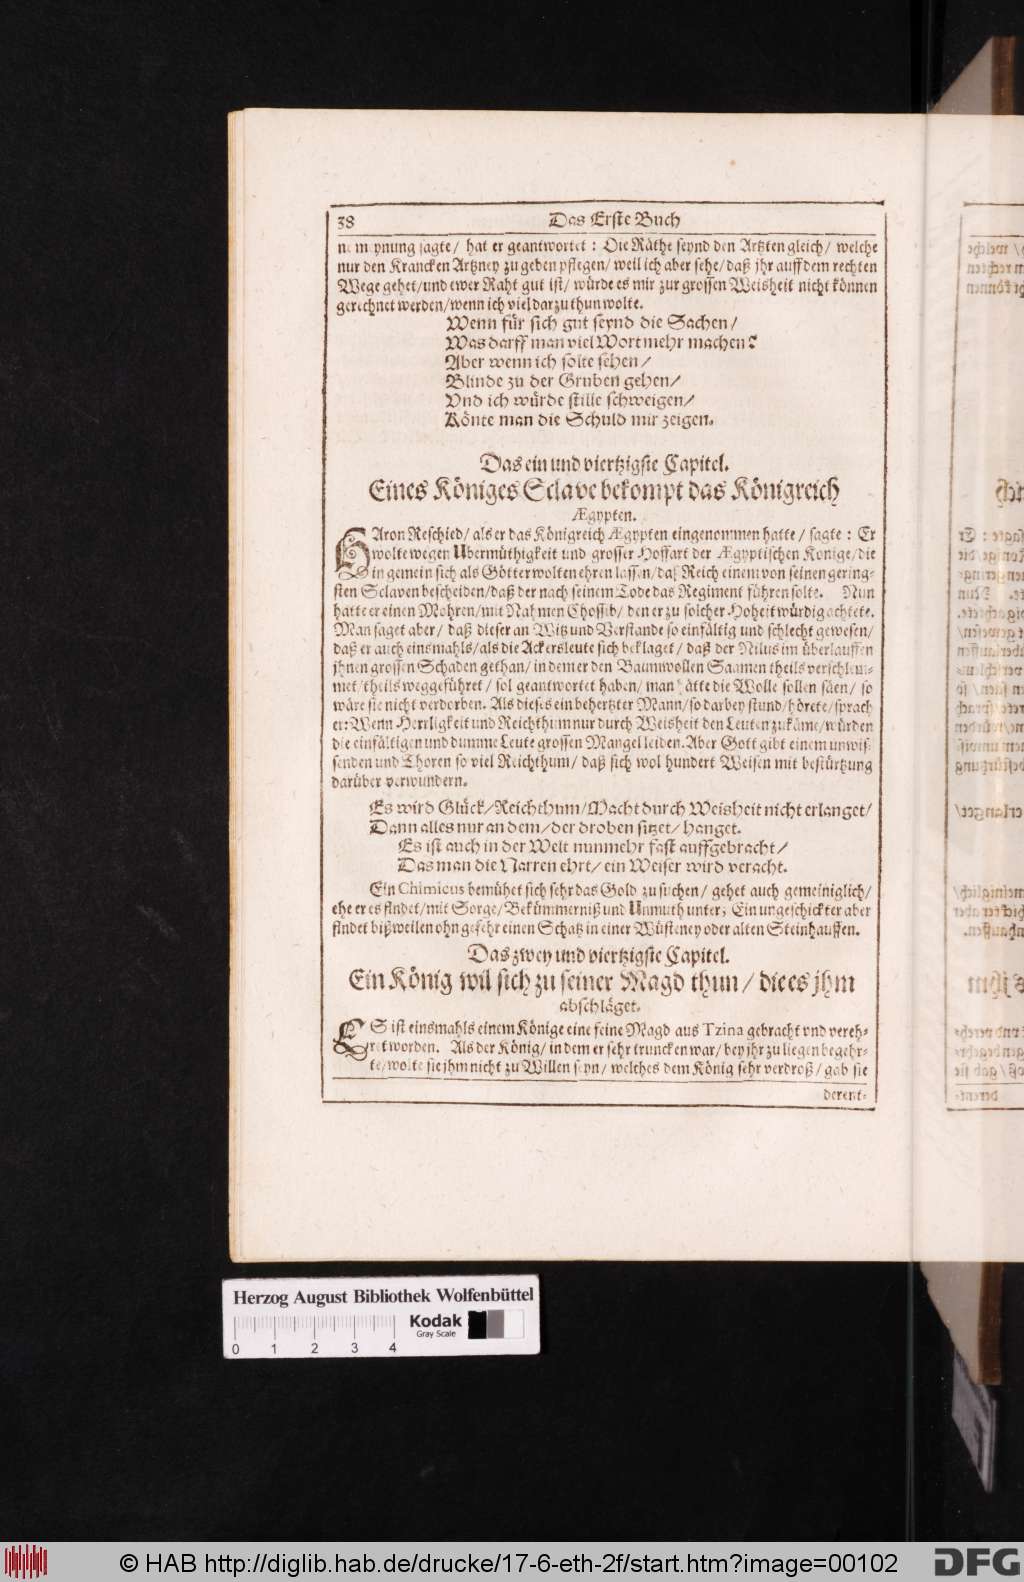 38 Das Erste Buch
ne meynung sagte/ hat er geantwortet : Die Räthe seynd den Artzten gleich/ welche
nur den Krancken Artzney zu geben pflegen/ weil ich aber sehe/ daß jhr auff dem rechten
Wege gehet/ und ewer Raht gut ist/ würde es mir zur grossen Weisheit nicht können
gerechnet werden/ wenn ich viel darzu thun wolte.
Wenn für sich gut seynd die Sachen/
Was darff man viel Wort mehr machen?
Aber wenn ich solte sehen/
Blinde zu der Gruben gehen/
Vnd ich würde stille schweigen/
Könte man die Schuld mir zeigen.
Das ein und viertzigste Capitel.
Eines Königes Sclave bekompt das Königreich
Ægypten.
HAron Reschied/ als er das Königreich Ægypten eingenommen hatte/ sagte : Er
wolte wegen Ubermüthigkeit und grosser Hoffart der Ægyptischen Konige/ die
in gemein sich als Götter wolten ehren lassen/ daß Reich einem von seinen gering-
sten Sclaven bescheiden/ daß der nach seinem Tode das Regiment führen solte. Nun
hatte er einen Mohren/ mit Nahmen Chossib/ den er zu solcher Hoheit würdig achtete.
Man saget aber/ daß dieser an Witz und Verstande so einfältig und schlecht gewesen/
daß er auch einsmahls/ als die Ackersleute sich beklaget/ daß der Nilus im überlauffen
jhnen grossen Schaden gethan/ in dem er den Baumwollen Saamen theils verschlem-
met/ theils weggeführet/ sol geantwortet haben/ man hätte die Wolle sollen säen/ so
wäre sie nicht verdorben. Als dieses ein behertzter Mann/ so darbey stund/ hörete/ sprach
er: Wenn Herrligkeit und Reichthum nur durch Weisheit den Leuten zukäme/ würden
die einfältigen und dumme Leute grossen Mangel leiden. Aber Gott gibt einem unwis-
senden und Thoren so viel Reichthum/ daß sich wol hundert Weisen mit bestürtzung
darüber verwundern.
Es wird Glück/ Reichthum/ Macht durch Weisheit nicht erlanget/
Dann alles nur an dem/ der droben sitzet/ hanget.
Es ist auch in der Welt nunmehr fast auffgebracht/
Das man die Narren ehrt/ ein Weiser wird veracht.
Ein Chimicus bemühet sich sehr das Gold zu suchen/ gehet auch gemeiniglich/
ehe er es findet/ mit Sorge/ Bekümmerniß und Unmuth unter; Ein ungeschickter aber
findet bißweilen ohn gefehr einen Schatz in einer Wüsteney oder alten Steinhauffen.
Das zwey und viertzigste Capitel.
Ein König wil sich zu seiner Magd thun/ die es jhm
abschläget.
ES ist einsmahls einem Könige eine feine Magd aus Tzina gebracht vnd vereh-
ret worden. Als der König/ in dem er sehr truncken war/ bey jhr zu liegen begehr-
te/ wolte sie jhm nicht zu Willen seyn/ welches dem König sehr verdroß/ gab sie
derent-
Herzog August Bibliothek Wolfenbüttel
Kodak
Gray Scale
0 1 2 3 4
© HAB http://diglib.hab.de/drucke/17-6-eth-2f/start.htm?image=00102
DFG